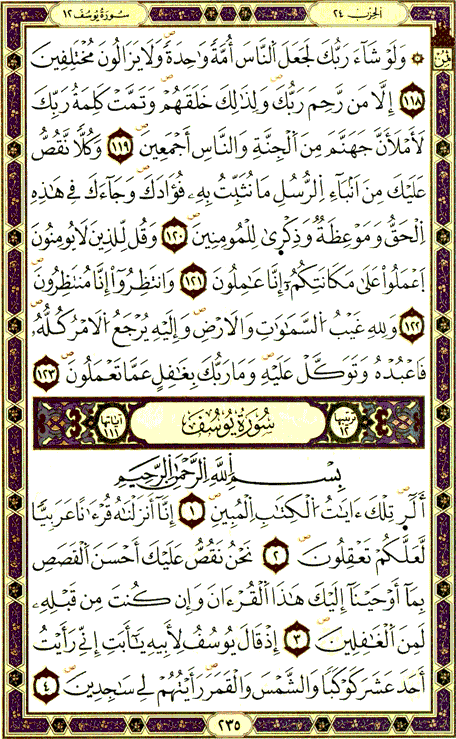 الحزب ٢٤
سُورَة يُوسُف ١٢
ثمن
وَلَوْ شَآءَ رَبُّكَ لَجَعَلَ اَلنَّاسَ أُمَّةً وَاحِدَةً وَلَا يَزَالُونَ مُخْتَلِفِينَ
١١٨ إِلَّا مَن رَّحِمَ رَبُّكَ وَلِذَٰلِكَ خَلَقَهُمْ وَتَمَّتْ كَلِمَةُ رَبِّكَ
لَأَمْلَأَنَّ جَهَنَّمَ مِنَ اَلْجِنَّةِ وَالنَّاسِ أَجْمَعِينَ ١١٩ وَكُلّاً نَّقُصُّ
عَلَيْكَ مِنَ اَنۢبَآءِ اِلرُّسُلِ مَا نُثَبِّتُ بِهِۦ فُؤَادَكَ وَجَآءَكَ فِے هَٰذِهِ
اِلْحَقُّ وَمَوْعِظَةٌ وَذِكْرَىٰ لِلْمُومِنِينَ ١٢٠ وَقُل لِّلذِينَ لَا يُومِنُونَ
اَعْمَلُواْ عَلَىٰ مَكَانَتِكُمُۥٓ إِنَّا عَٰمِلُونَ ١٢١ وَانتَظِرُوٓاْ إِنَّا مُنتَظِرُونَ
١٢٢ وَلِلهِ غَيْبُ اُلسَّمَٰوَٰتِ وَالَارْضِ وَإِلَيْهِ يُرْجَعُ اُلَامْرُ كُلُّهُۥ
فَاعْبُدْهُ وَتَوَكَّلْ عَلَيْهِ وَمَا رَبُّكَ بِغَٰفِلٍ عَمَّا تَعْمَلُونَ ١٢٣
ترتيبها ١٢
سُورَةُ يُوسُفَ
آياتها ١١١
بِسْمِ اِللَّهِ اِلرَّحْمَٰنِ اِلرَّحِيمِ
أَلَٓر تِلْكَ ءَايَٰتُ اُلْكِتَٰبِ اِلْمُبِينِ ١ إِنَّآ أَنزَلْنَٰهُ قُرْءَٰناً عَرَبِيّاً
لَّعَلَّكُمْ تَعْقِلُونَ ٢ نَحْنُ نَقُصُّ عَلَيْكَ أَحْسَنَ اَلْقَصَصِ
بِمَآ أَوْحَيْنَآ إِلَيْكَ هَٰذَا اَلْقُرْءَانَ وَإِن كُنتَ مِن قَبْلِهِۦ
لَمِنَ اَلْغَٰفِلِينَ ٣ إِذْ قَالَ يُوسُفُ لِأَبِيهِ يَٰٓأَبَتِ إِنِّے رَأَيْتُ
أَحَدَ عَشَرَ كَوْكَباً وَالشَّمْسَ وَالْقَمَرَ رَأَيْتُهُمْ لِے سَٰجِدِينَ ٤
٢٣٥